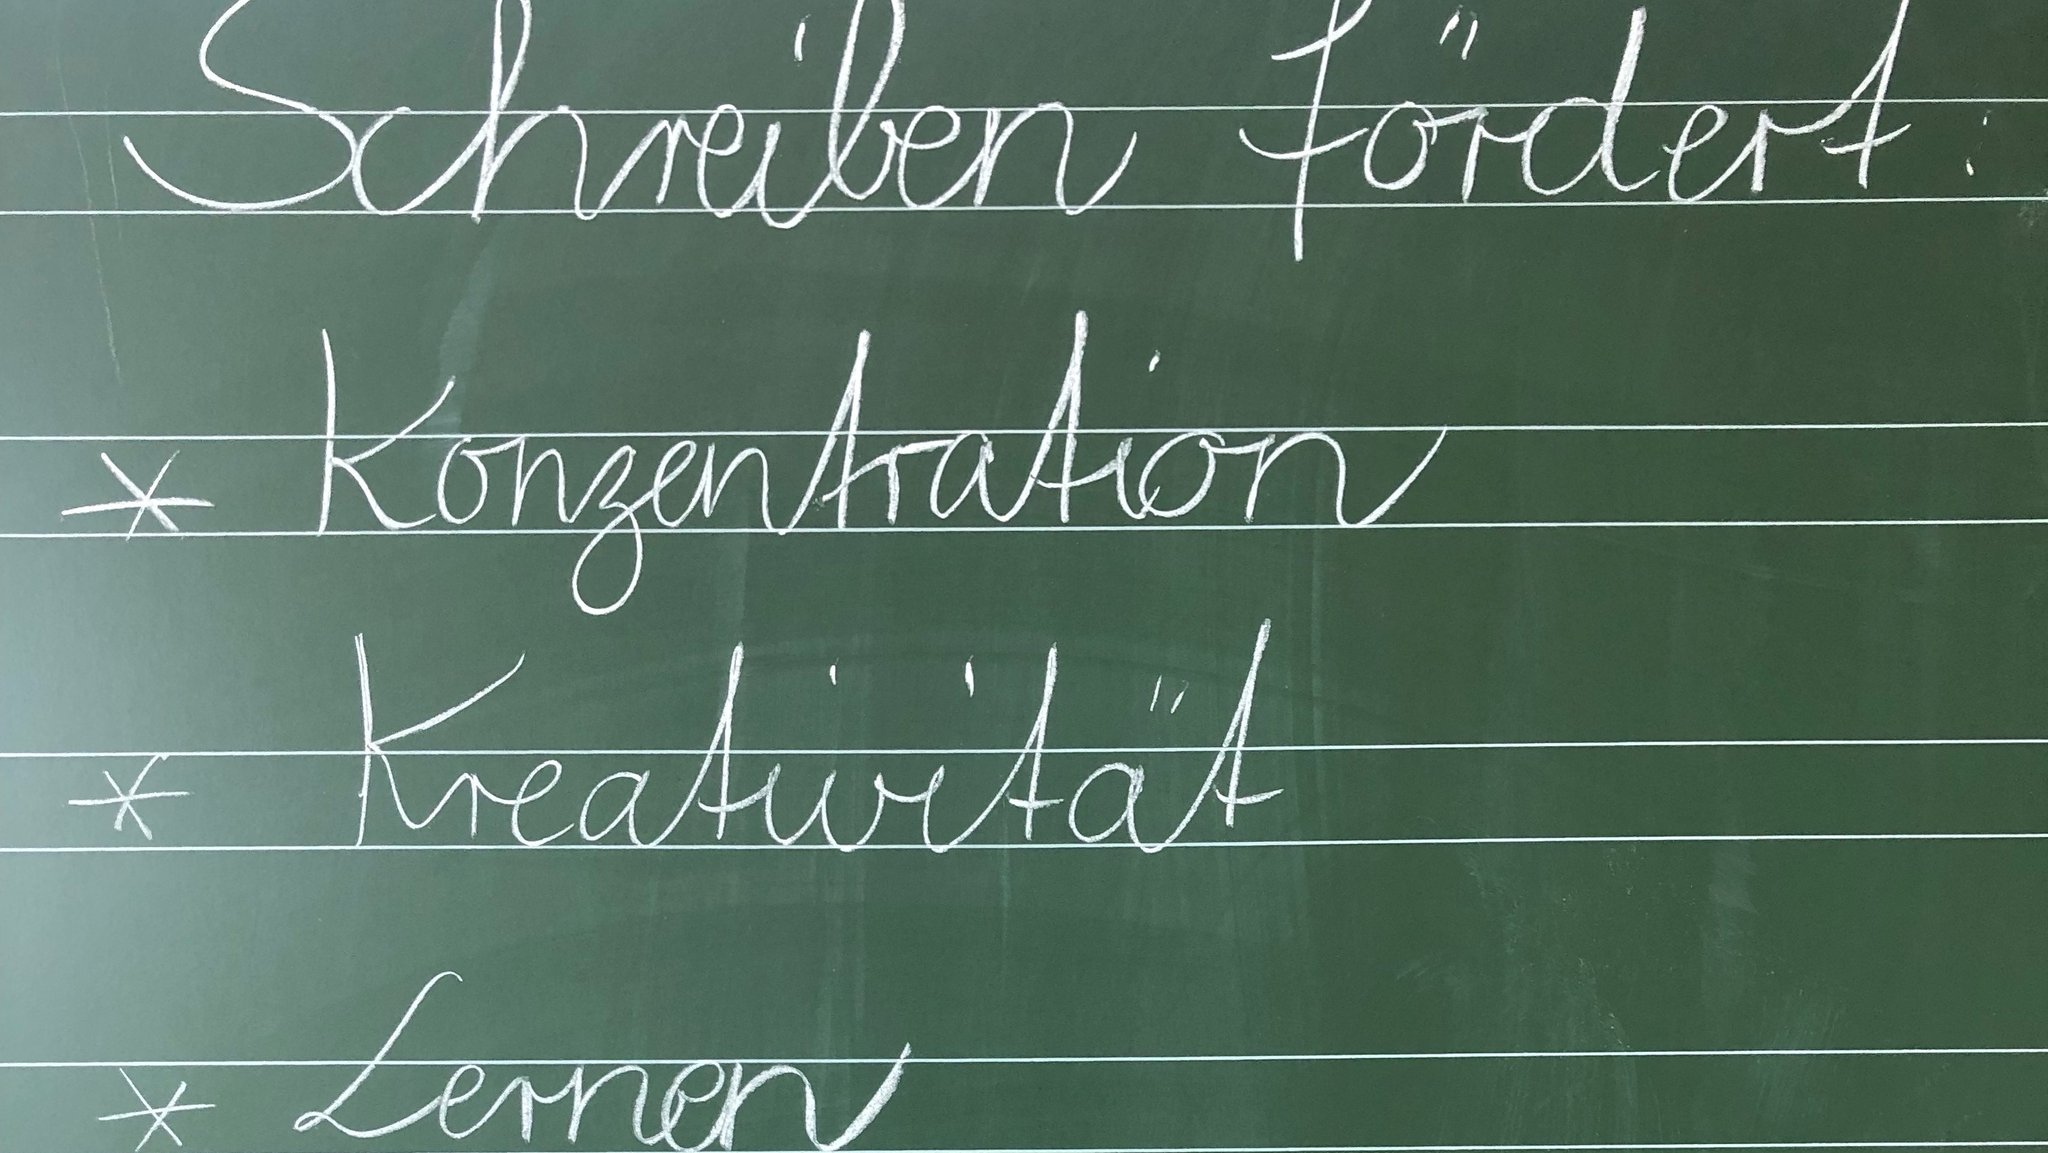 Schreiben fördert:
* Konzentration
* Kreativität
* Lernen